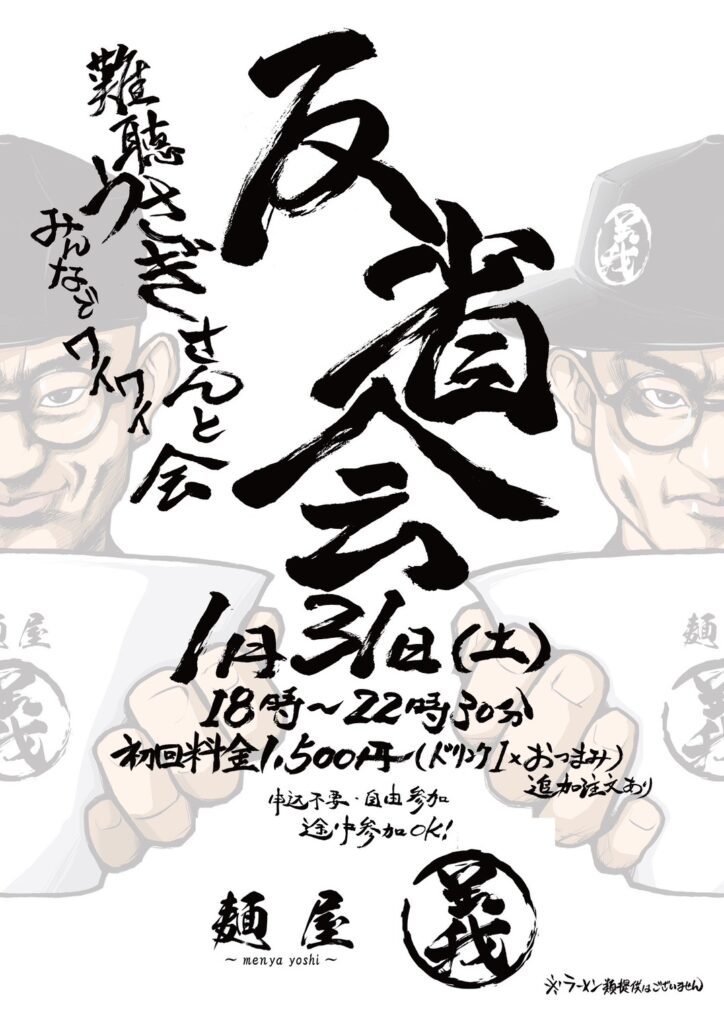 反省会
難聴うさぎさんと会
みんなでワイワイ
1月31日(土)
18時~22時30分
初回料金1,500円(ドリンク1×おつまみ)
追加注文あり
申込不要・自由参加
途中参加OK!
麺屋
~menya yoshi~
義
※ラーメン類提供はございません
義
麺屋
義
麺
義